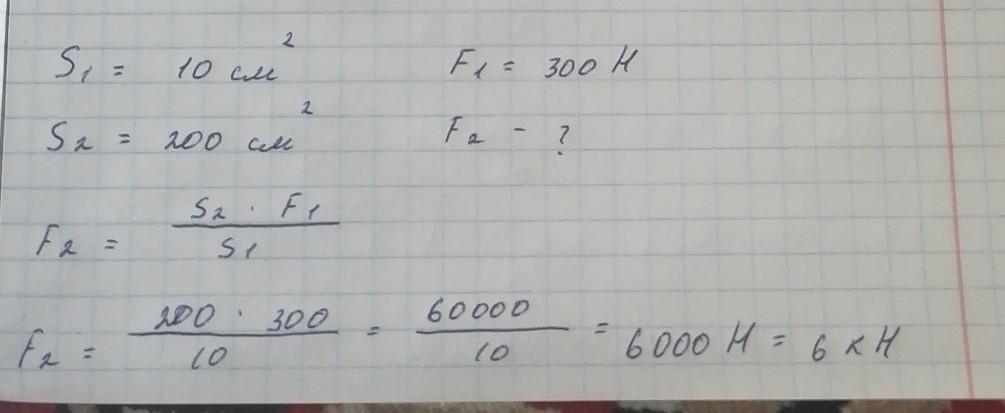 S₁ = 10 см² F₁ = 300 Н
S₂ = 200 см² F₂ - ?
F₂ = S₂ · F₁ / S₁
F₂ = 200 · 300 / 10 = 60000 / 10 = 6000 Н = 6 кН